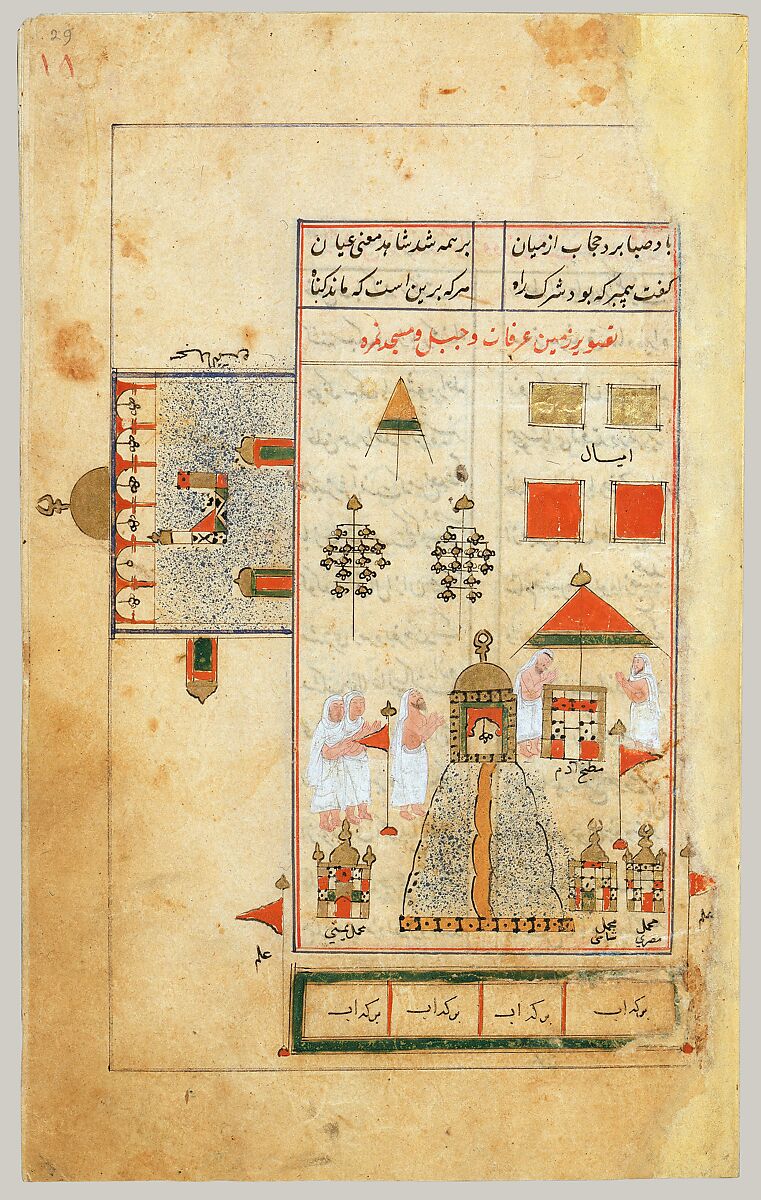 29
١٨
باد صبا برد حجاب از میان برهمه شد شاهد معنی عیان
گفت پیمبر که بود شرک راه هرکه برین است که ماند گناه
تصویر زمین عرفات و جبل و مسجد نمره
امیال
مطبخ آدم
محمل یمنی
محمل شامی
محمل مصری
علم
علم
برکه اب برکه اب برکه اب برکه اب